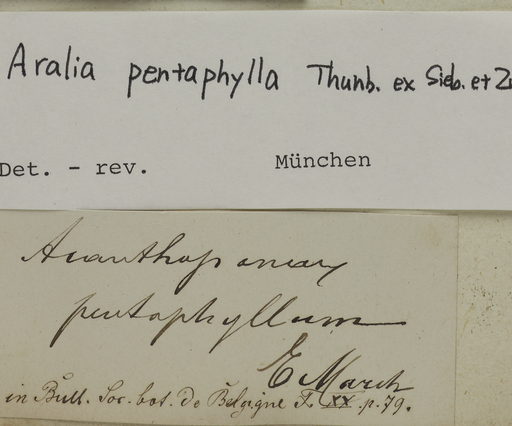 Aralia pentaphylla Thunb. ex Sieb. et Zu
Det. - rev. München
Acanthopanax
pentaphyllum
E March
in Bull. Soc. bot. de Belgique T. XX. p. 79.